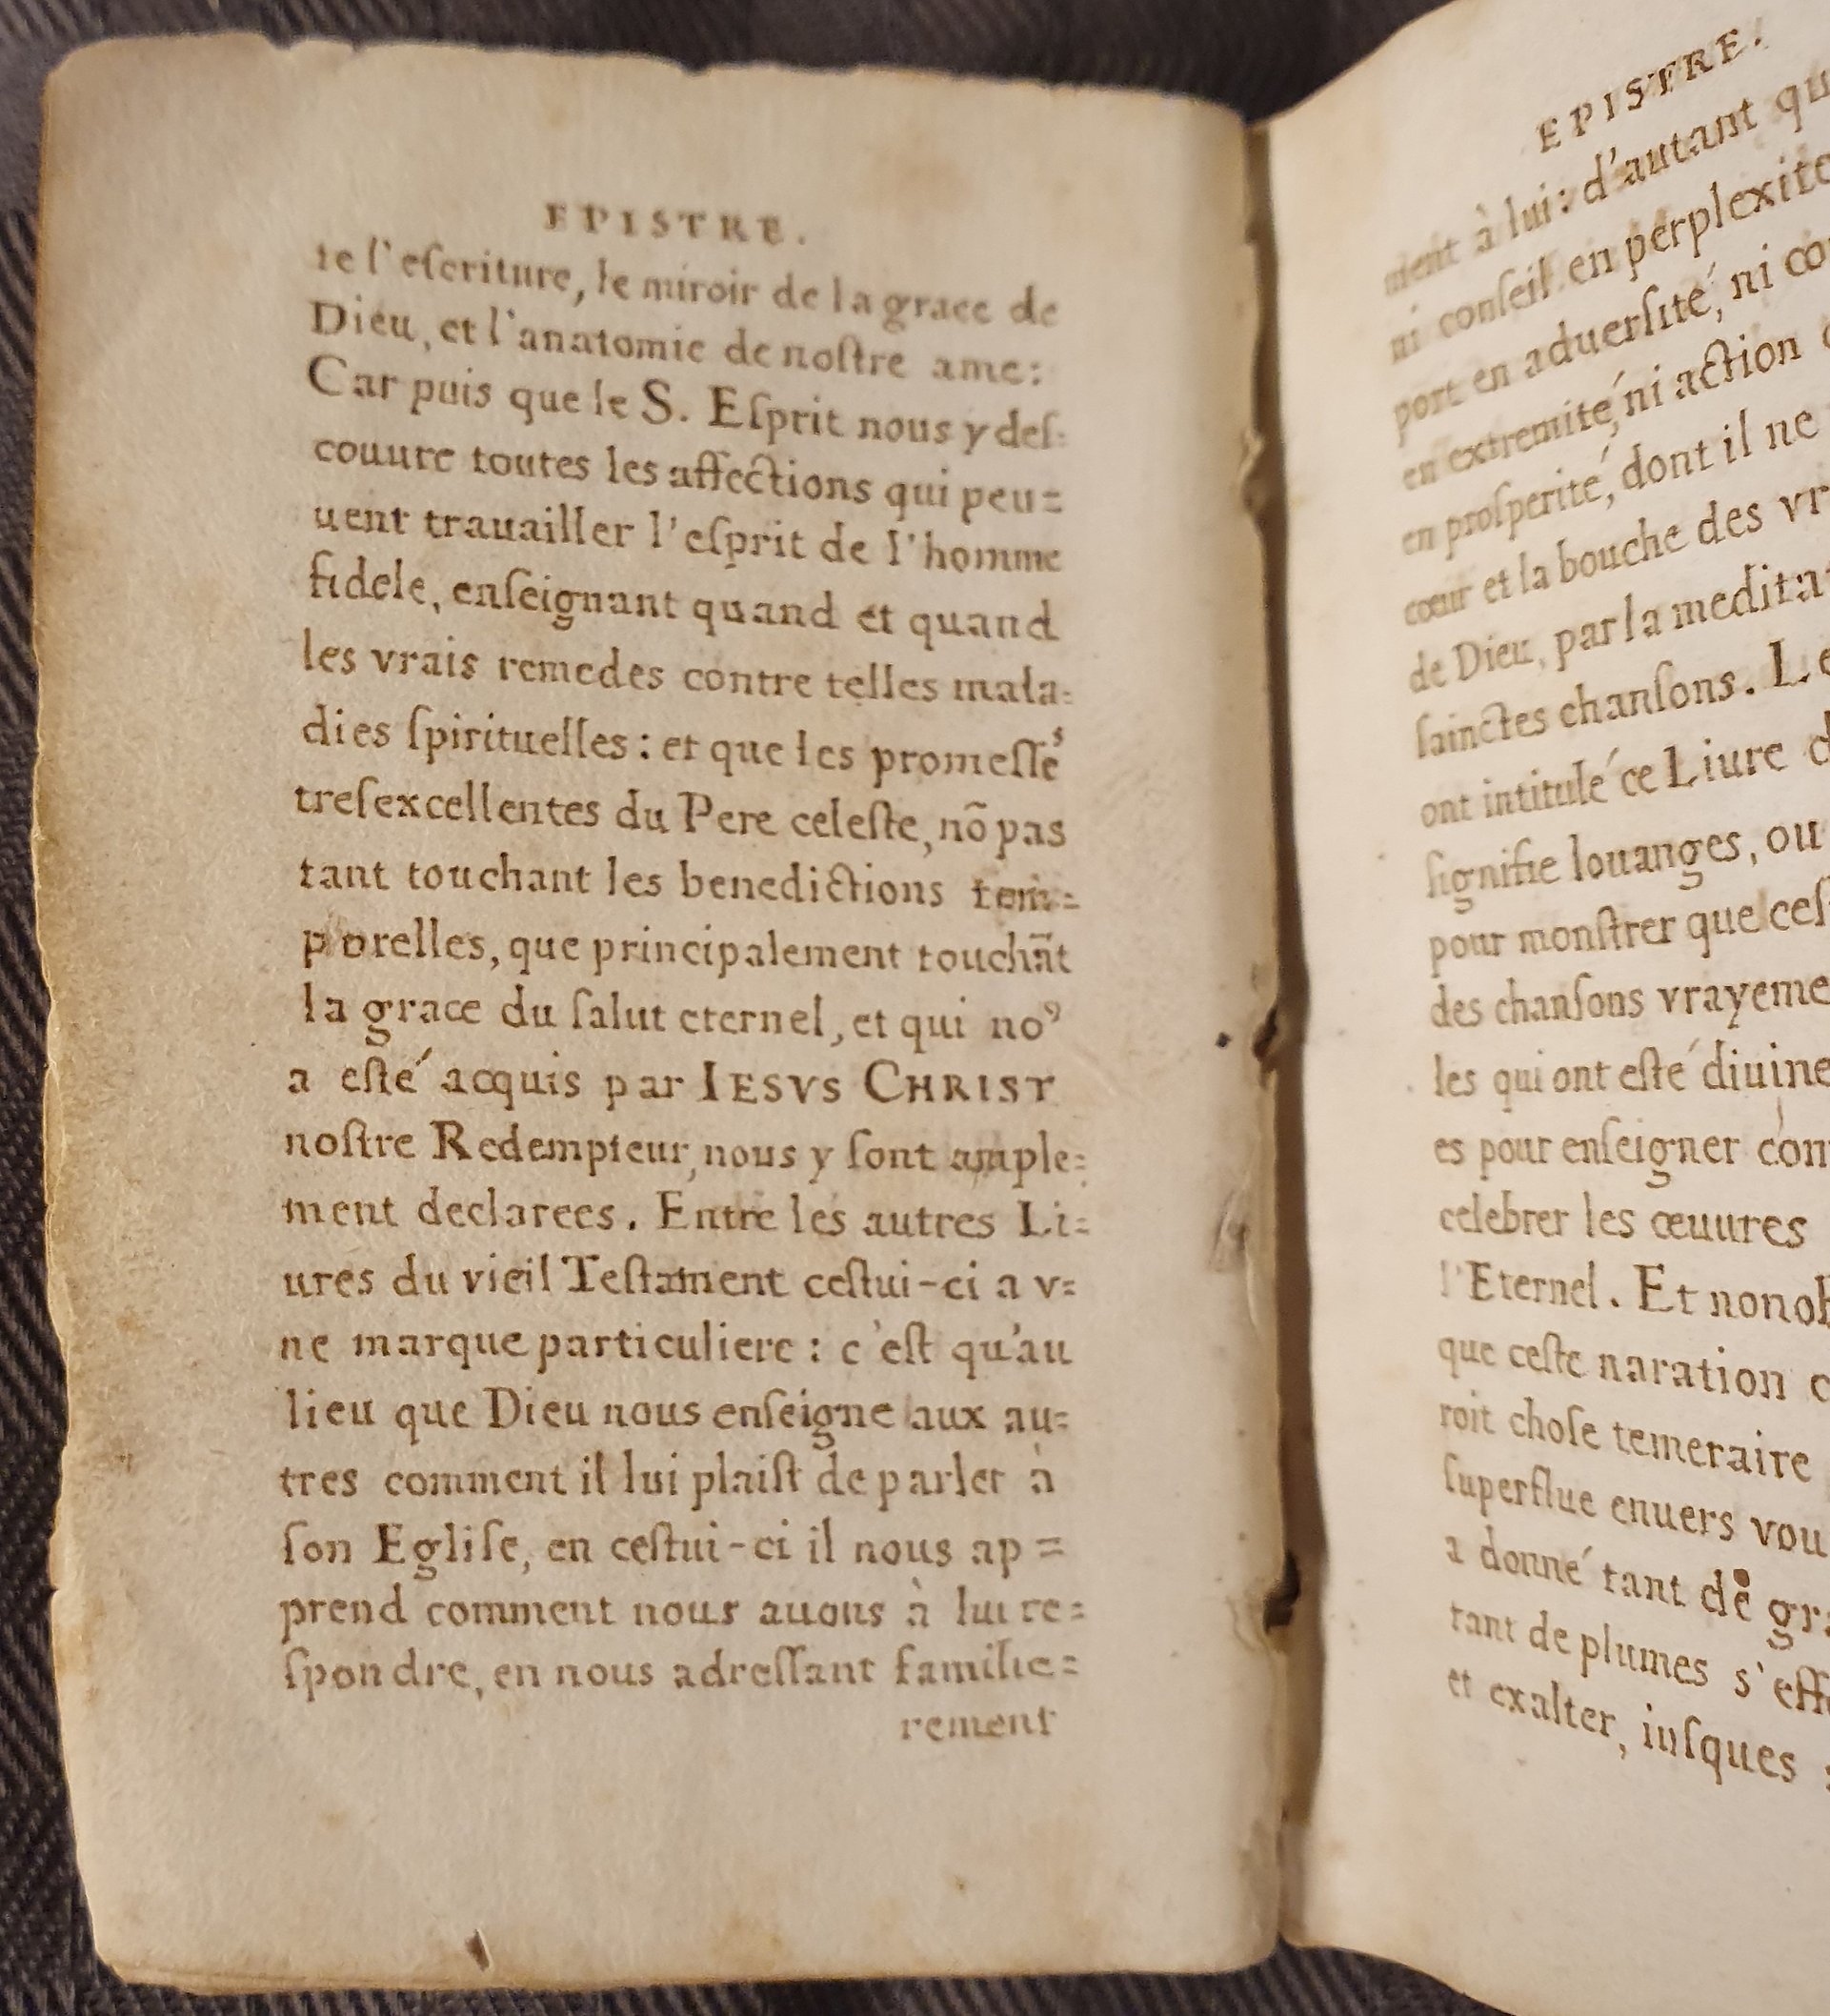 EPISTRE.
te l'eſcriture, le miroir de la grace de
Dieu, et l'anatomie de noſtre ame:
Car puis que le S. Eſprit nous y deſ=
couure toutes les affections qui peu=
uent trauailler l'eſprit de l'homme
fidele, enſeignant quand et quand
les vrais remedes contre telles mala=
dies ſpirituelles: et que les promeſſeˢ
treſexcellentes du Pere celeſte, nõ pas
tant touchant les benedictions tem=
porelles, que principalement touchãt
la grace du ſalut eternel, et qui noꝰ
a eſté acquis par IESVS CHRIST
noſtre Redempteur, nous y ſont ample=
ment declarees. Entre les autres Li=
ures du vieil Teſtament ceſtui-ci a v=
ne marque particuliere: c'eſt qu'au
lieu que Dieu nous enſeigne aux au=
tres comment il lui plaiſt de parler à
ſon Egliſe, en ceſtui-ci il nous ap=
prend comment nous auons à lui re=
ſpondre, en nous adreſſant familie=
rement
EPISTRE.
ment à lui: d'autant qu
ni conſeil en perplexité
port en aduerſité, ni co
en extremité, ni action
en proſperité, dont il ne
cœur et la bouche des vr
de Dieu, par la medita
ſainctes chanſons. Le
ont intitulé ce Liure d
ſignifie louanges, ou
pour monſtrer que ceſ
des chanſons vrayeme
les qui ont eſté diuine
es pour enſeigner com
celebrer les œuures
l'Eternel. Et nonob
que ceſte naration c
roit choſe temeraire
ſuperflue enuers vou
a donné tant de gra
tant de plumes s'eff
et exalter, iuſques